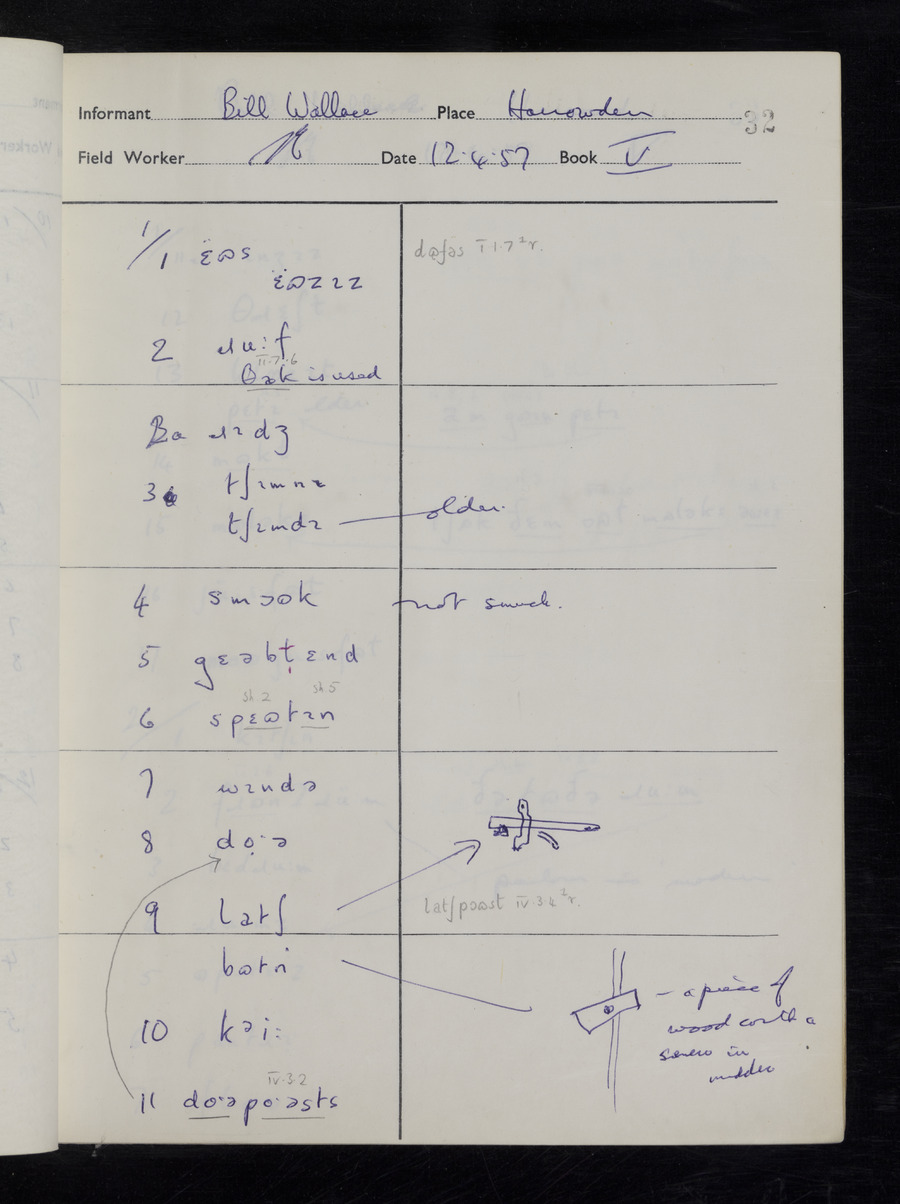 Informant Bill Wallace Place Harrowden 32
Field Worker Date 12.4.57 Book V
1/1 ɛ̈ɷs dɷʃəs I.1.7 ²r.
ɛ̈ɷzɪz
2 ɹu:f
II.7.6
θək is used
3a ɹɪdʒ
3 tʃɪmnɪ
tʃɪmdɪ older.
4 smɔɷk not smuck.
5 gɛəbḷɛnd
sh 2 sh 5
6 spɛɷtɪn
7 wɪndə
8 dọ·ə
9 latʃ latʃpɔɷst IV.3.4 ²r.
bɷtn̩
– a piece of
wood with a
screw in
middle
10 kəi:
IV.3.2
11 do·əpo·əsts